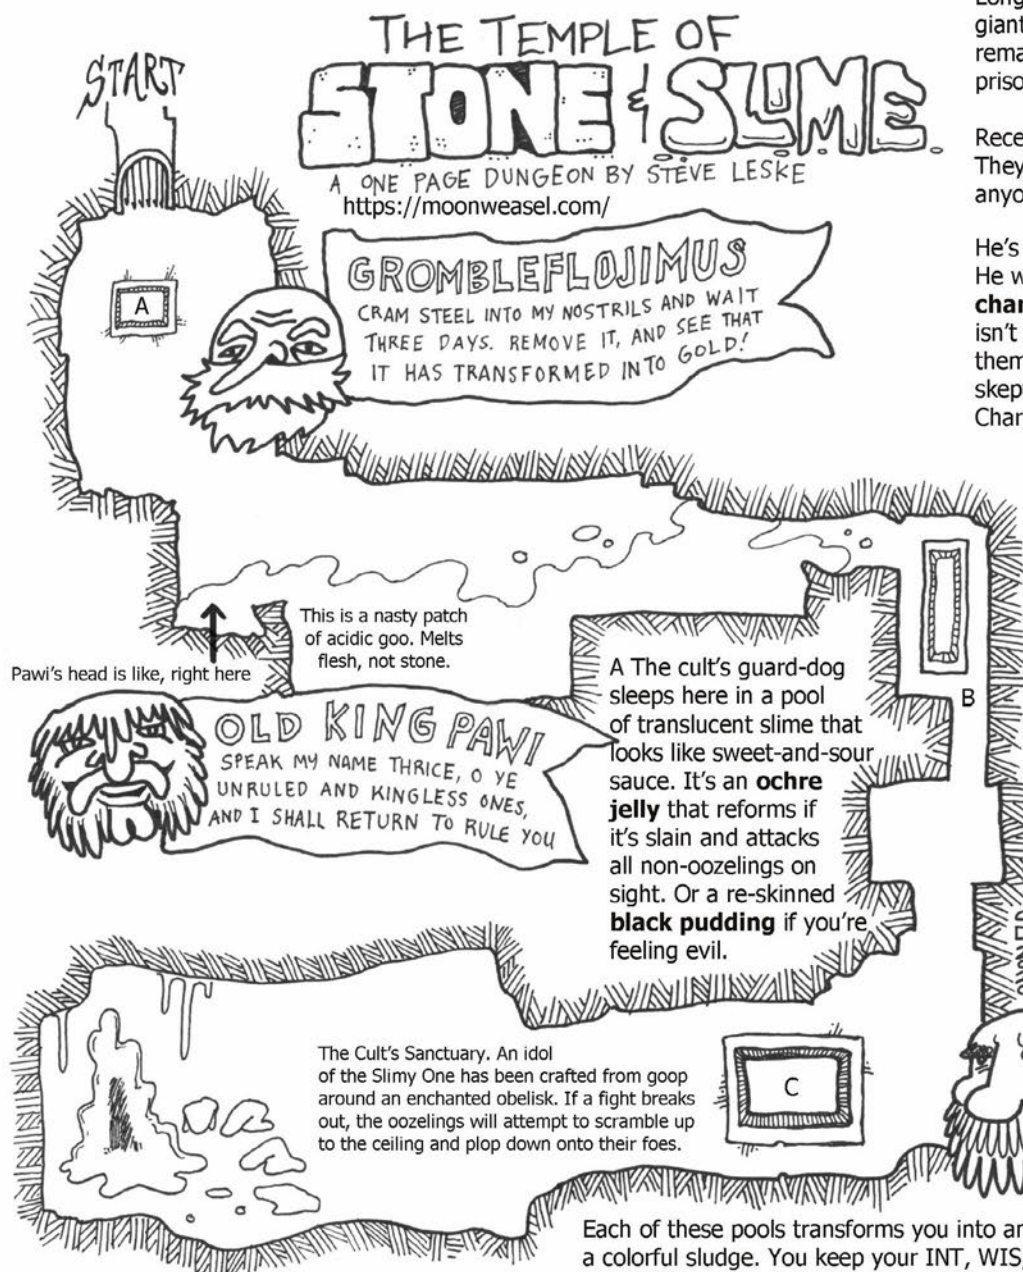 THE TEMPLE OF
STONE & SLIME
A ONE PAGE DUNGEON BY STEVE LESKE
https://moonweasel.com/
START
GROMBLEFLOJIMUS
CRAM STEEL INTO MY NOSTRILS AND WAIT
THREE DAYS. REMOVE IT, AND SEE THAT
IT HAS TRANSFORMED INTO GOLD!
A
giant
rema
priso
Rece
They
anyo
He's
He w
char
isn't
them
skep
Char
This is a nasty patch
of acidic goo. Melts
flesh, not stone.
Pawi's head is like, right here
OLD KING PAWI
SPEAK MY NAME THRICE, O YE
UNRULED AND KINGLESS ONES,
AND I SHALL RETURN TO RULE YOU
A The cult's guard-dog
sleeps here in a pool
of translucent slime that
looks like sweet-and-sour
sauce. It's an ochre
jelly that reforms if
it's slain and attacks
all non-oozelings on
sight. Or a re-skinned
black pudding if you're
feeling evil.
B
The Cult's Sanctuary. An idol
of the Slimy One has been crafted from goop
around an enchanted obelisk. If a fight breaks
out, the oozelings will attempt to scramble up
to the ceiling and plop down onto their foes.
C
Each of these pools transforms you into an
a colorful sludge. You keep your INT, WIS,